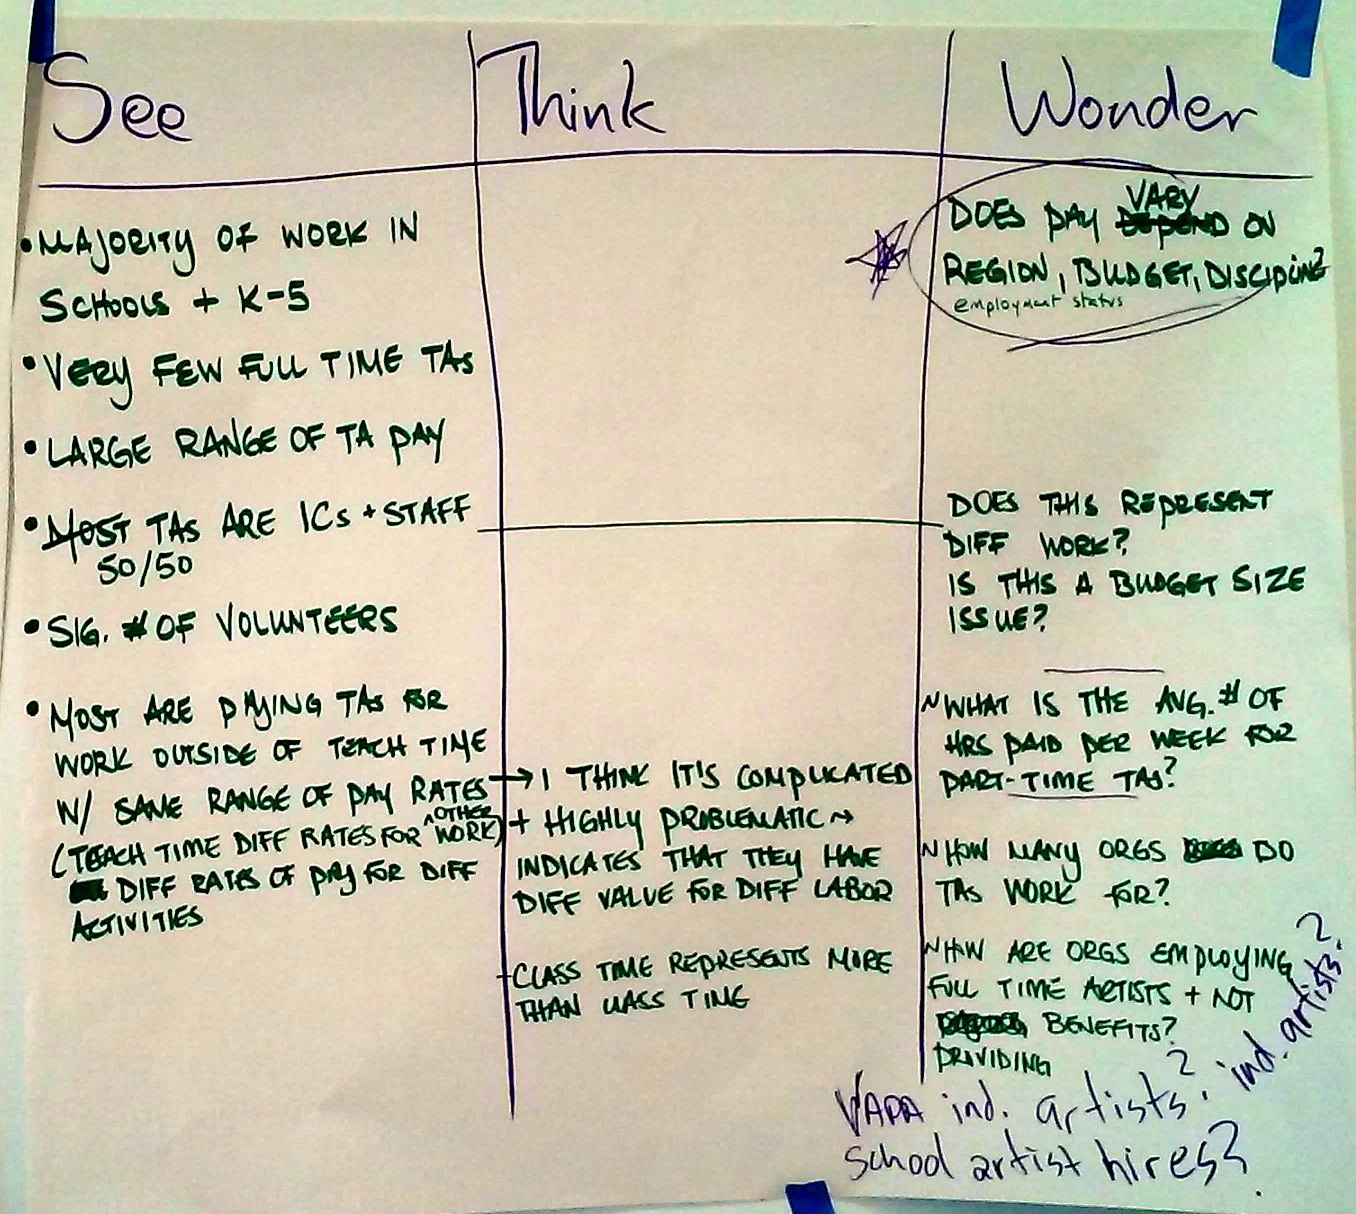 See
Think
Wonder
• MAJORITY OF WORK IN
SCHOOLS + K-5
• VERY FEW FULL TIME TAs
• LARGE RANGE OF TA PAY
• MOST TAs ARE ICs + STAFF
50/50
• SIG. # OF VOLUNTEERS
• MOST ARE PAYING TAs FOR
WORK OUTSIDE OF TEACH TIME
W/ SAME RANGE OF PAY RATES
(TEACH TIME DIFF RATES FOR ^OTHER WORK)
DIFF RATES OF PAY FOR DIFF
ACTIVITIES
→ I THINK IT'S COMPLICATED
+ HIGHLY PROBLEMATIC ~
INDICATES THAT THEY HAVE
DIFF VALUE FOR DIFF LABOR
- CLASS TIME REPRESENTS MORE
THAN CLASS TIME
DOES PAY VARY DEPEND ON
REGION, BUDGET, DISCIPLINE?
employment status
DOES THIS REPRESENT
DIFF WORK?
IS THIS A BUDGET SIZE
ISSUE?
~ WHAT IS THE AVG. # OF
HRS PAID PER WEEK FOR
PART-TIME TAs?
~ HOW MANY ORGS DO
TAs WORK FOR?
~ HOW ARE ORGS EMPLOYING
FULL TIME ARTISTS + NOT
BENEFITS?
PROVIDING
ind. artists?
ind. artists?
school artist hires?